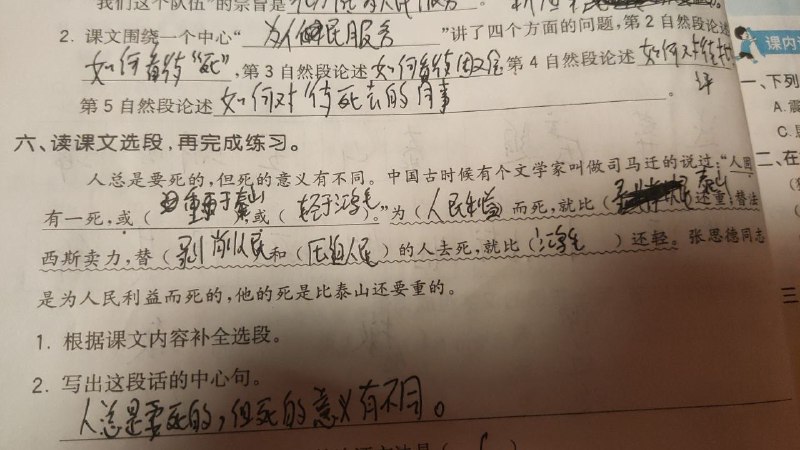 我们这个队伍”的宗旨是
2. 课文围绕一个中心“为人民服务”讲了四个方面的问题,第 2 自然段论述
如何看待“死”,第 3 自然段论述 如何 第 4 自然段论述 如何对待批
第 5 自然段论述 如何对待死去的同事。 评
六、读课文选段,再完成练习。
人总是要死的,但死的意义有不同。中国古时候有个文学家叫做司马迁的说过:“人固
有一死,或(重于泰山)或(轻于鸿毛)。”为(人民利益)而死,就比(泰山)还重;替法
西斯卖力,替(剥削人民)和(压迫人民)的人去死,就比(鸿毛)还轻。张思德同志
是为人民利益而死的,他的死是比泰山还要重的。
1. 根据课文内容补全选段。
2. 写出这段话的中心句。
人总是要死的,但死的意义有不同。
课内
一、下列
A. 震
C.
二、在
三